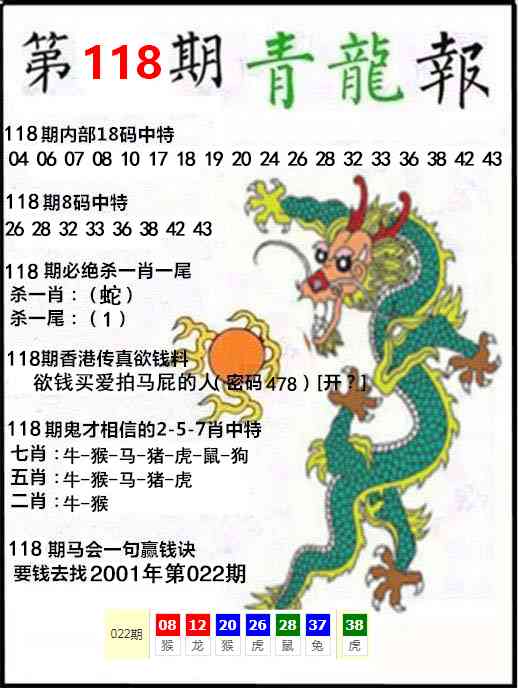 第118期青龍報
118期内部18码中特
04 06 07 08 10 17 18 19 20 24 26 28 32 33 36 38 42 43
118期8码中特
26 28 32 33 36 38 42 43
118期必绝杀一肖一尾
杀一肖：（蛇）
杀一尾：（1）
118期香港传真欲钱料
欲钱买爱拍马屁的人(密码478)[开？]
118期鬼才相信的2-5-7肖中特
七肖：牛-猴-马-猪-虎-鼠-狗
五肖：牛-猴-马-猪-虎
二肖：牛-猴
118期马会一句赢钱诀
要钱去找2001年第022期
022期 08 12 20 26 28 37 38
猴 龙 猴 虎 鼠 兔 虎